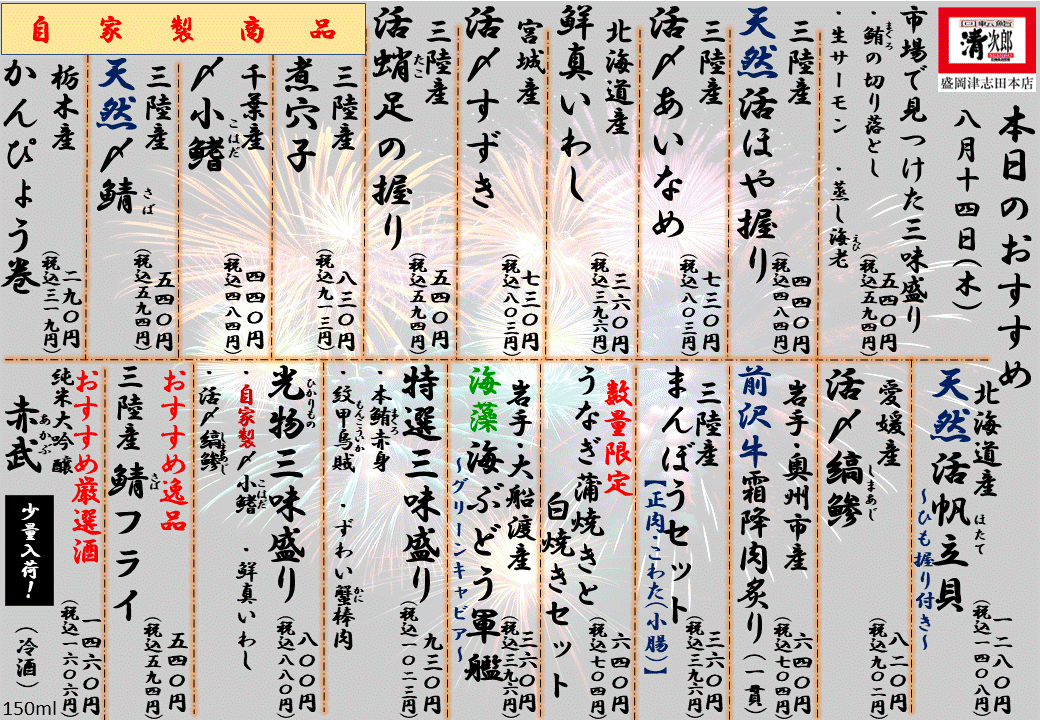 回転鮨
清次郎
盛岡津志田本店
本日のおすすめ
八月十四日(木)
市場で見つけた三味盛り
・鮪の切り落とし
まぐろ
・生サーモン ・蒸し海老
えび
五四〇円
(税込五九四円)
三陸産
天然活ほや握り
四四〇円
(税込四八四円)
三陸産
活〆あいなめ
七三〇円
(税込八〇三円)
北海道産
鮮真いわし
三六〇円
(税込三九六円)
宮城産
活〆すずき
七三〇円
(税込八〇三円)
三陸産
活蛸足の握り
たこ
五四〇円
(税込五九四円)
自家製商品
三陸産
煮穴子
八三〇円
(税込九一三円)
千葉産
〆小鰭
こはだ
四四〇円
(税込四八四円)
三陸産
天然〆鯖
さば
五四〇円
(税込五九四円)
栃木産
かんぴょう巻
二九〇円
(税込三一九円)
北海道産
天然活帆立貝
ほたて
~ひも握り付き~
一二八〇円
(税込一四〇八円)
愛媛産
活〆縞鰺
しまあじ
八二〇円
(税込九〇二円)
岩手・奥州市産
前沢牛霜降肉炙り(一貫)
六四〇円
(税込七〇四円)
三陸産
まんぼうセット
【正肉・こわた(小腸)】
三六〇円
(税込三九六円)
数量限定
うなぎ蒲焼きと
白焼きセット
六四〇円
(税込七〇四円)
岩手・大船渡産
海藻海ぶどう軍艦
~グリーンキャビア~
三六〇円
(税込三九六円)
特選三味盛り
・本鮪赤身
まぐろ
・紋甲烏賊 ・ずわい蟹棒肉
もんごういか
かに
九三〇円
(税込一〇二三円)
光物三味盛り
ひかりもの
・自家製〆小鰭 ・鮮真いわし
こはだ
・活〆縞鰺
しまあじ
八〇〇円
(税込八八〇円)
おすすめ逸品
三陸産 鯖フライ
さば
五四〇円
(税込五九四円)
おすすめ厳選酒
純米大吟醸
赤武
あかぶ
少量入荷!
(冷酒)
一四六〇円
(税込一六〇六円)
150ml